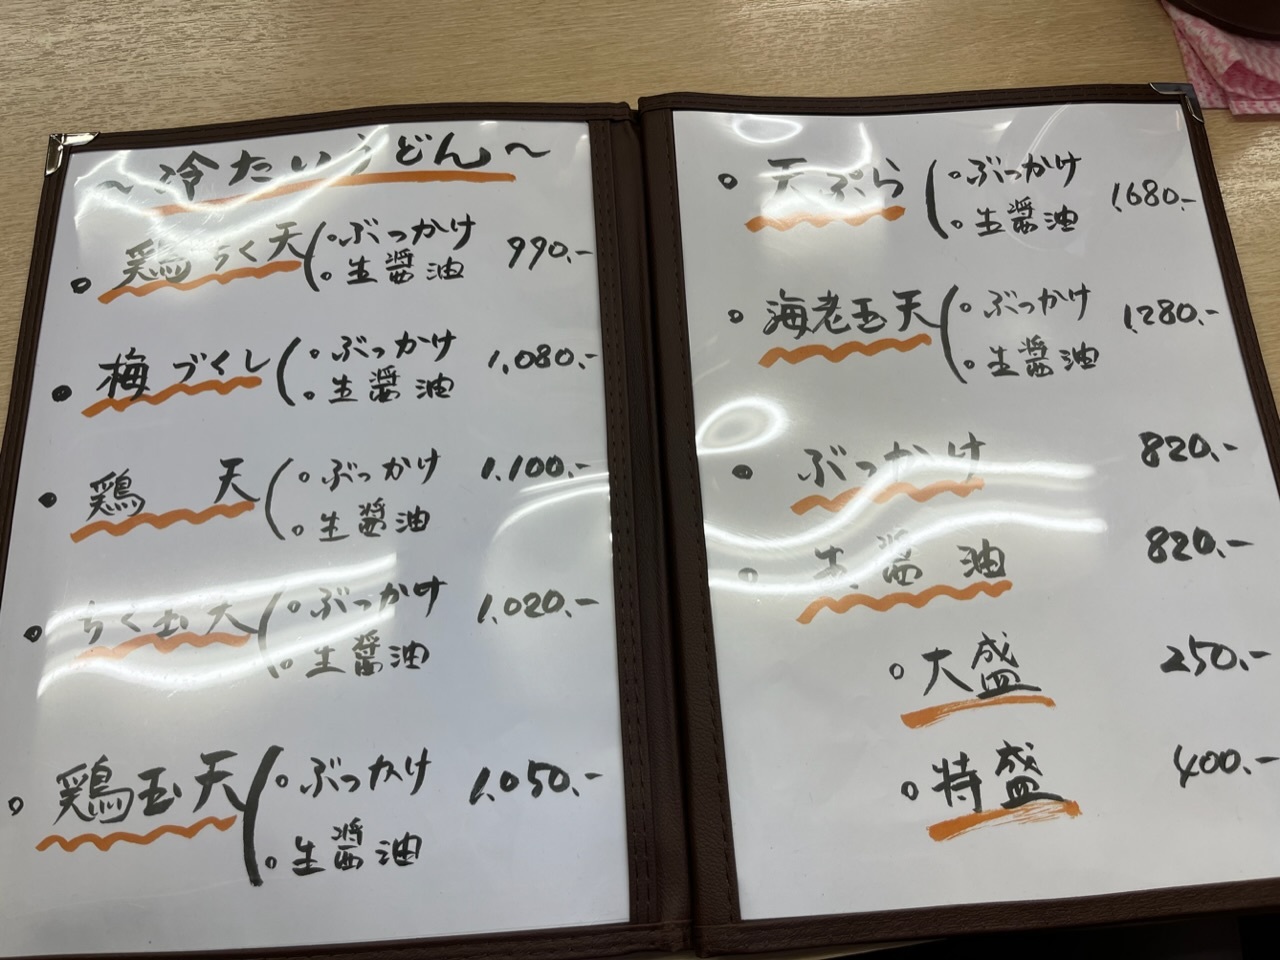 ～冷たいうどん～
鶏ちく天 ・ぶっかけ 990.-
・生醤油
梅づくし ・ぶっかけ 1,080.-
・生醤油
鶏天 ・ぶっかけ 1,100.-
・生醤油
ちく玉天 ・ぶっかけ 1,020.-
・生醤油
鶏玉天 ・ぶっかけ 1,050.-
・生醤油
天ぷら ・ぶっかけ 1,680.-
・生醤油
海老玉天 ・ぶっかけ 1,280.-
・生醤油
ぶっかけ 820.-
生醤油 820.-
大盛 250.-
特盛 400.-